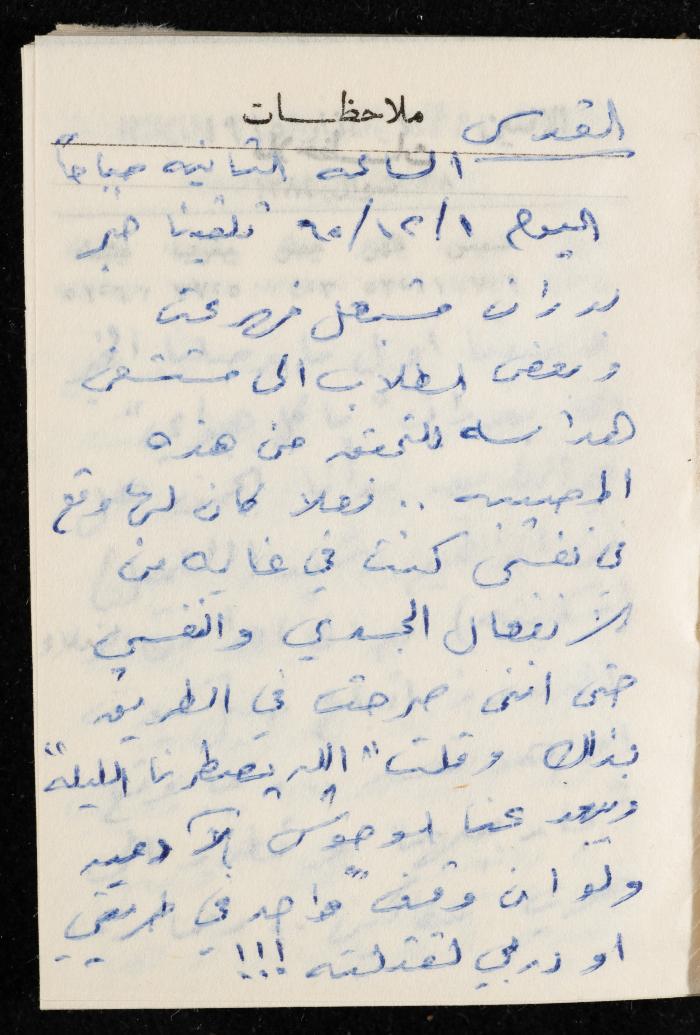 ملاحظات
القدس
الساعه الثانيه صباحاً
اليوم ١/١٢/٩٠ تلقينا خبر
فهرعت
وبعض الطلاب الى مستشفى
هداسه للتحقق من هذه
المصيبه .. فعلا كان لها وقع
في نفسي كنت في غايه من
الانفعال الجسدي والنفسي
حتى انني صرحت في الطريق
بذلك وقلت " الله يصطرنا الليله"
ويبعد عنا لوحوش الآدميه
ولو ان وقف" واحد في طريقي
او دربي لقتلته !!!